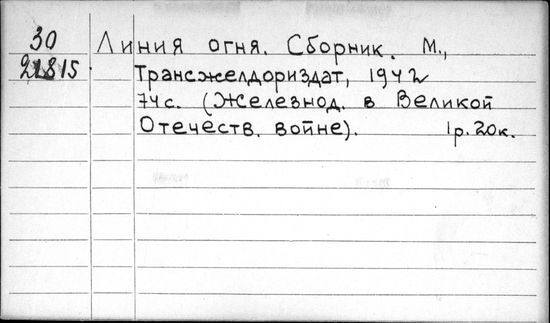 30
Линия огня. Сборник. М.,
Трансжелдориздат, 1942
74 с. (Железнод. в Великой
Отечеств. войне). 1р. 20к.